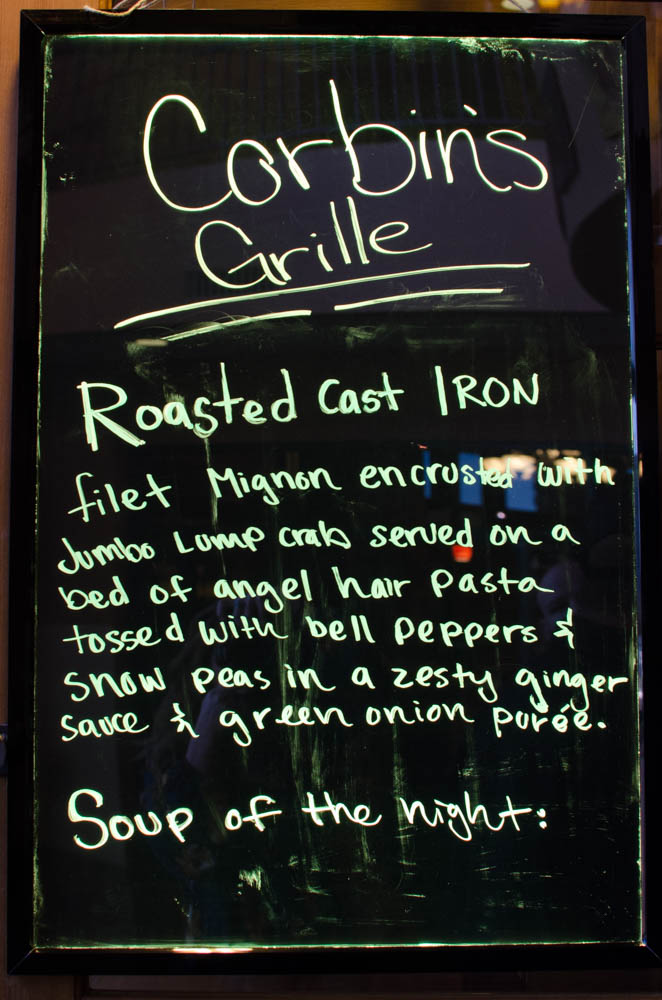 Corbin's
Grille
Roasted Cast IRON
filet Mignon encrusted with
Jumbo Lump crab served on a
bed of angel hair Pasta
tossed with bell Peppers &
snow peas in a zesty ginger
sauce & green onion purée.
Soup of the night: